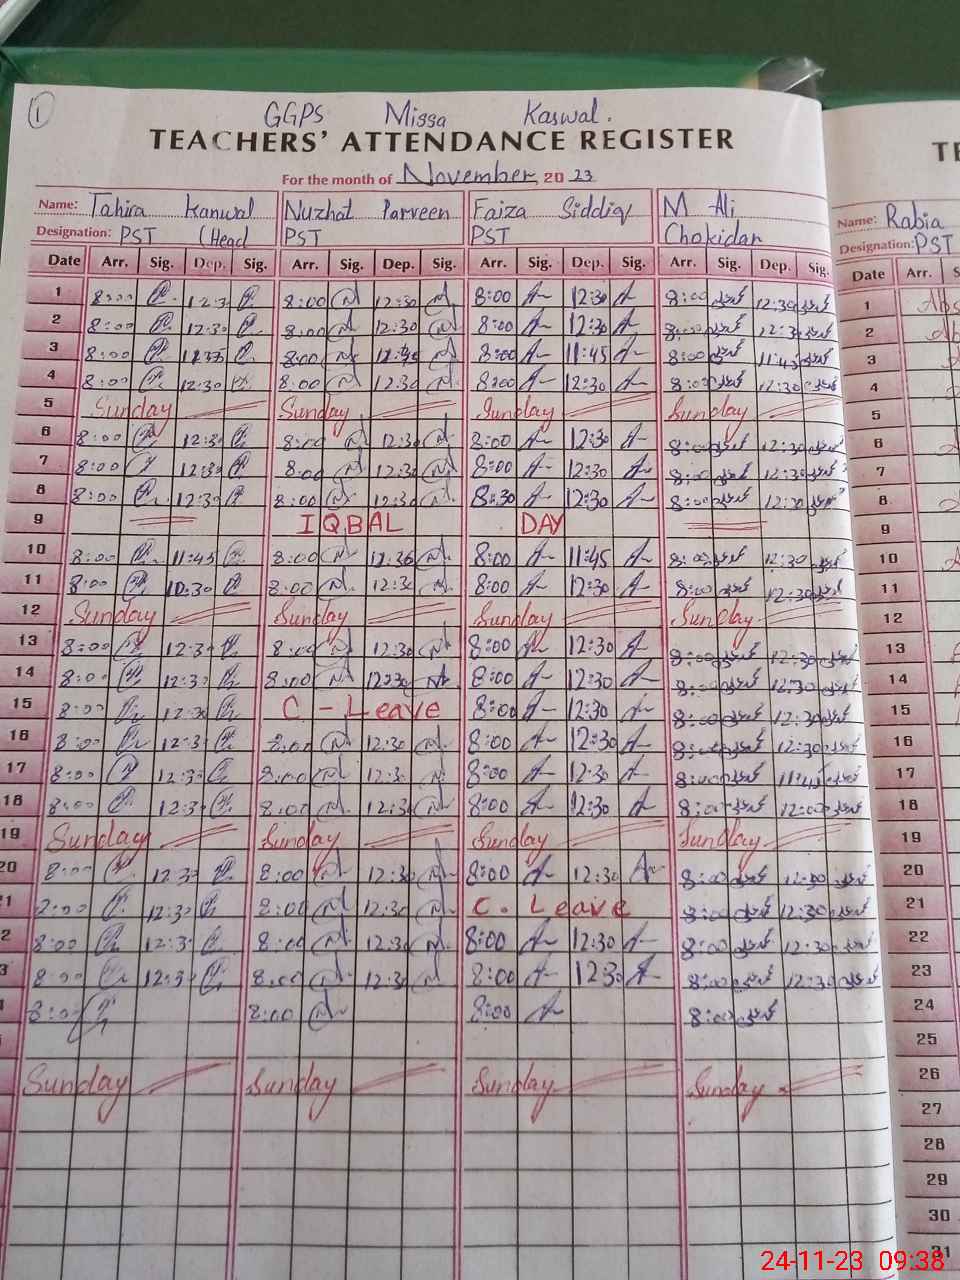 1 GGPS Missa Kaswal.
TEACHERS' ATTENDANCE REGISTER TE
For the month of November, 2023
Name: Tahira Kanwal Nuzhat Parveen Faiza Siddiq M Ali Name: Rabia
Designation: PST (Head PST PST Chokidar Designation: PST
Date Arr. Sig. Dep. Sig. Arr. Sig. Dep. Sig. Arr. Sig. Dep. Sig. Arr. Sig. Dep. Sig. Date Arr. S
1 8:00 12:30 8:00 12:30 8:00 12:30 8:00 12:30 1
2 8:00 12:30 8:00 12:30 8:00 12:30 8:00 12:30 2
3 8:00 8:00 8:00 11:45 8:00 11:45 3
4 8:00 12:30 8:00 12:30 8:00 12:30 8:00 12:30 4
5 Sunday Sunday Sunday Sunday 5
6 8:00 12:30 8:00 12:30 8:00 12:30 8:00 12:30 6
7 8:00 12:30 8:00 12:30 8:00 12:30 8:00 12:30 7
8 8:00 12:30 8:00 12:30 8:30 12:30 8:00 12:30 8
9 IQBAL DAY 9
10 8:00 11:45 8:00 8:00 11:45 8:00 12:30 10
11 8:00 8:00 12:30 8:00 12:30 8:00 12:30 11
12 Sunday Sunday Sunday Sunday 12
13 8:00 12:30 8:00 12:30 8:00 12:30 8:00 12:30 13
14 8:00 12:30 8:00 12:30 8:00 12:30 8:00 12:30 14
15 8:00 12:30 C - Leave 8:00 12:30 8:00 12:30 15
16 8:00 12:30 8:00 12:30 8:00 12:30 8:00 12:30 16
17 8:00 12:30 8:00 12:30 8:00 12:30 8:00 11:45 17
18 8:00 12:30 8:00 12:30 8:00 12:30 8:00 12:00 18
19 Sunday Sunday Sunday Sunday 19
20 8:00 12:30 8:00 12:30 8:00 12:30 8:00 12:30 20
1 12:30 8:00 12:30 C. Leave 8:00 12:30 21
2 8:00 12:30 8:00 12:30 8:00 12:30 8:00 12:30 22
3 8:00 12:30 8:00 12:30 8:00 12:30 8:00 12:30 23
8:00 8:00 8:00 8:00 24
25
Sunday Sunday Sunday Sunday 26
27
28
29
30
31
24-11-23 09:38